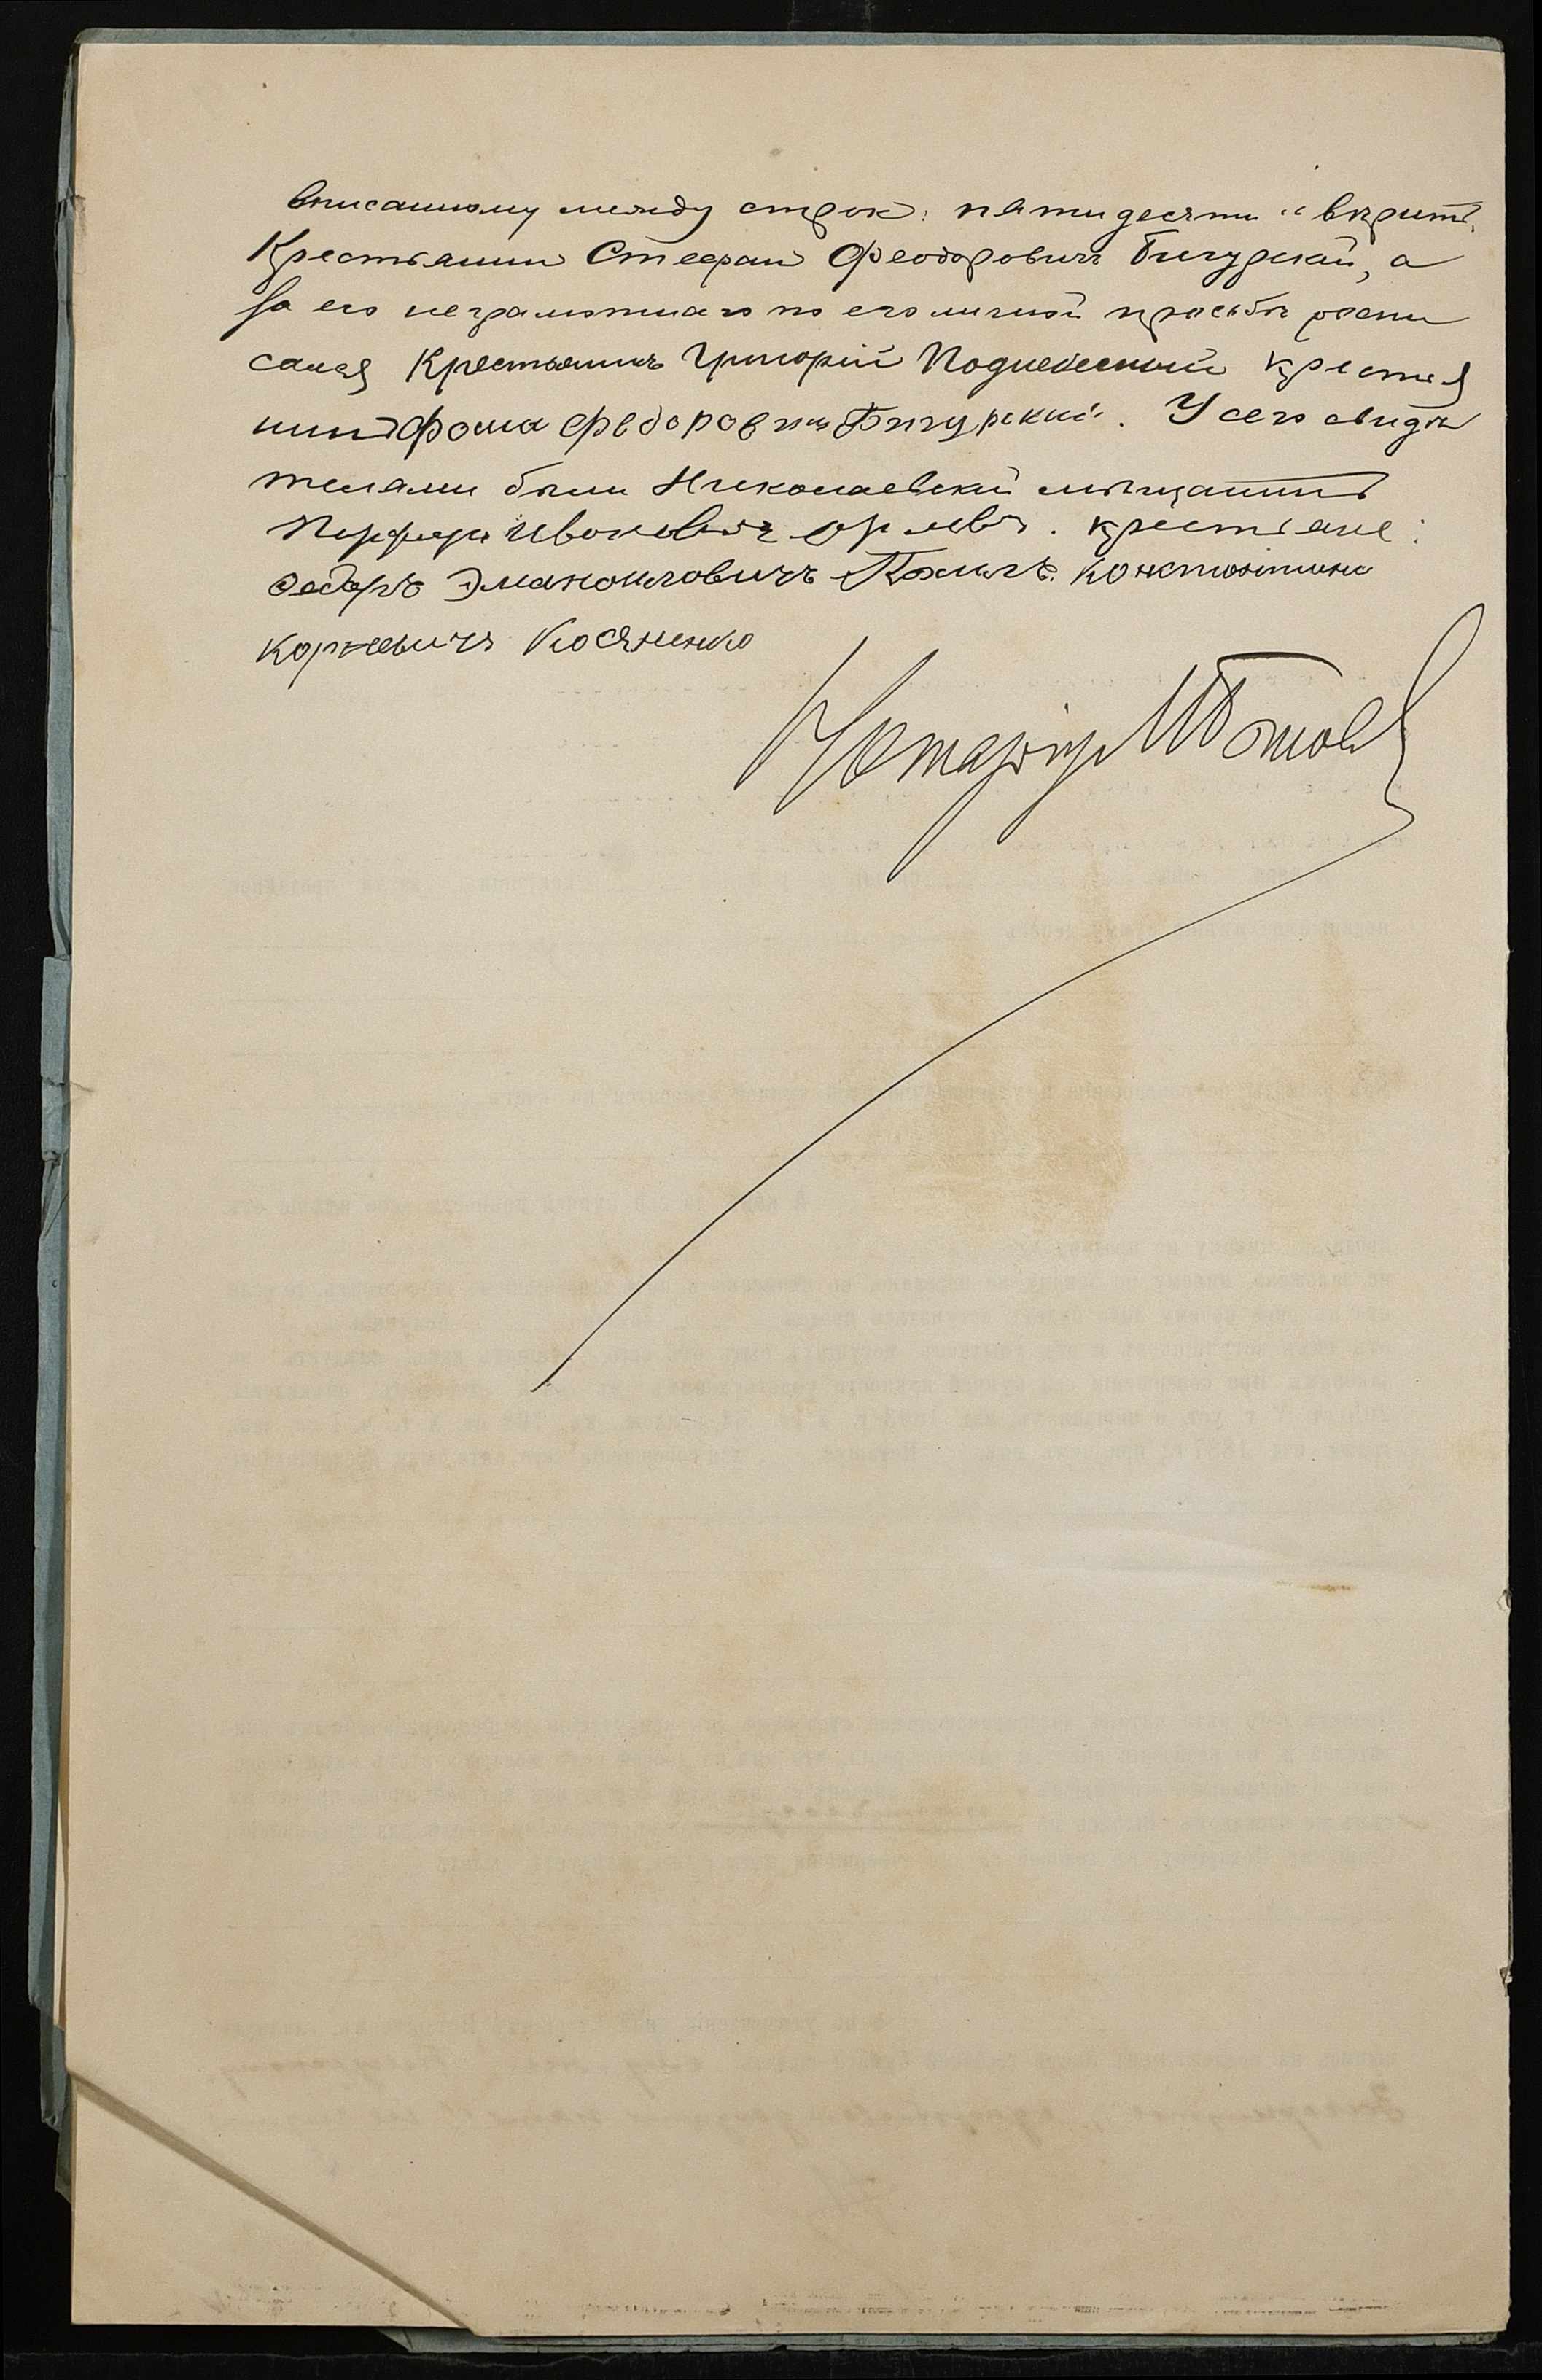 вписанному между строк: „пятидесяти“ и вѣрить.
Крестьянинъ Стефанъ Феодоровичъ Бичурскій, а
за его неграмотнаго по его личной просьбѣ роспи
сался Крестьянинъ Григорій Поднебесный крестья
нинъ Фома Федоровичъ Бичурский. У сего свидѣ
телями были Николаевскій мѣщанинъ
Ивановичъ Орловъ. крестьяне:
Федоръ Эмануиловичъ Константинъ
Корнеевичъ Косяненко
Нотаріусъ